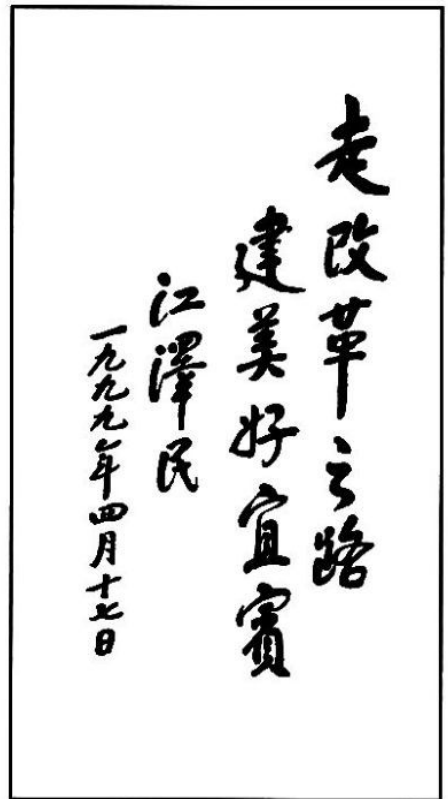 走改革之路
建美好宜賓
江澤民
一九九九年四月十七日